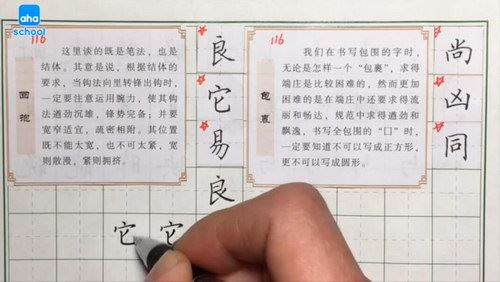 aha
school
116
这里谈的既是笔法，也是
结体。其意是说，根据结体的
要求，当钩法向里转锋出钩时，
一定要注意运用腕力，使其钩
法遒劲沉雄，锋势完备；并要
宽窄适宜，疏密相附。其位置
既不能太宽，也不可太紧，宽
则散漫，紧则拥挤。
回抱
良
它
易
良
116
我们在书写包围的字时，
无论是怎样一个“包裹”，求得
端庄是比较困难的，然而更加
困难的是在端庄中还要求得流
丽和畅达，规范中求得遒劲和
飘逸，书写全包围的“囗”时，
一定要知道不可以写成正方形，
更不可以写成圆形。
包裹
尚
凶
同
它 它